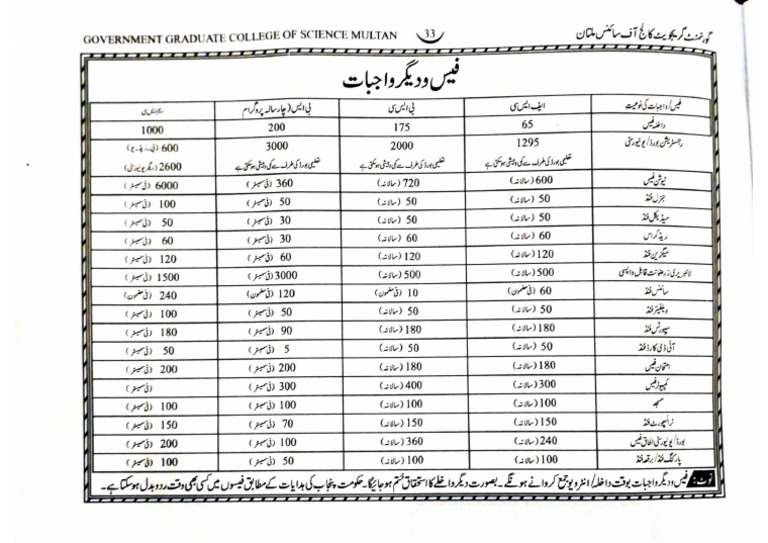 GOVERNMENT GRADUATE COLLEGE OF SCIENCE MULTAN 33 گورنمنٹ گریجویٹ کالج آف سائنس ملتان
فیس و دیگر واجبات
فیس/ واجبات کی نوعیت ایف ایس سی بی ایس سی بی ایس (چار سالہ پروگرام ایم ایس سی
داخلہ فیس 65 175 200 1000
رجسٹریشن بورڈ/ یونیورسٹی 1295 2000 3000 600
تعلیمی بورڈ کی طرف سے کمی و بیشی ہو سکتی ہے تعلیمی بورڈ کی طرف سے کمی و بیشی ہو سکتی ہے تعلیمی بورڈ کی طرف سے کمی و بیشی ہو سکتی ہے 2600 (دیگر یونیورسٹی)
ٹیوشن فیس 600 (سالانہ) 720 (سالانہ) 360 (فی سمیسٹر) 6000 (فی سمیسٹر)
جنرل فنڈ 50 (سالانہ) 50 (سالانہ) 50 (فی سمیسٹر) 100 (فی سمیسٹر)
میڈیکل فنڈ 50 (سالانہ) 50 (سالانہ) 30 (فی سمیسٹر) 50 (فی سمیسٹر)
ریڈ کراس 60 (سالانہ) 60 (سالانہ) 30 (فی سمیسٹر) 60 (فی سمیسٹر)
میگزین فنڈ 120 (سالانہ) 120 (سالانہ) 60 (فی سمیسٹر) 120 (فی سمیسٹر)
لائبریری زر ضمانت قابل واپسی 500 (سالانہ) 500 (سالانہ) 3000 (فی سمیسٹر) 1500 (فی سمیسٹر)
سائنس فنڈ 60 (فی مضمون) 10 (فی مضمون) 120 (فی مضمون) 240 (فی مضمون)
ویلفیئر فنڈ 50 (سالانہ) 50 (سالانہ) 50 (فی سمیسٹر) 100 (فی سمیسٹر)
سپورٹس فنڈ 180 (سالانہ) 180 (سالانہ) 90 (فی سمیسٹر) 180 (فی سمیسٹر)
آئی ڈی کارڈ فنڈ 50 (سالانہ) 50 (سالانہ) 5 (فی سمیسٹر) 50 (فی سمیسٹر)
امتحان فیس 180 (سالانہ) 180 (سالانہ) 200 (فی سمیسٹر) 200 (فی سمیسٹر)
کمپیوٹر فیس 300 (سالانہ) 400 (سالانہ) 300 (فی سمیسٹر) (فی سمیسٹر)
مسجد 100 (سالانہ) 100 (سالانہ) 100 (فی سمیسٹر) 100 (فی سمیسٹر)
ٹرانسپورٹ فنڈ 150 (سالانہ) 150 (سالانہ) 70 (فی سمیسٹر) 150 (فی سمیسٹر)
بورڈ/ یونیورسٹی الحاق فیس 240 (سالانہ) 360 (سالانہ) 100 (فی سمیسٹر) 200 (فی سمیسٹر)
پارکنگ فنڈ/ برقعہ فنڈ 100 (سالانہ) 100 (سالانہ) 50 (فی سمیسٹر) 100 (فی سمیسٹر)
نوٹ: فیس و دیگر واجبات بوقت داخلہ/ انٹرویو جمع کروانے ہونگے۔ بصورت دیگر داخلے کا استحقاق ختم ہو جائیگا۔ حکومت پنجاب کی ہدایات کے مطابق فیسوں میں کسی بھی وقت ردوبدل ہو سکتا ہے۔